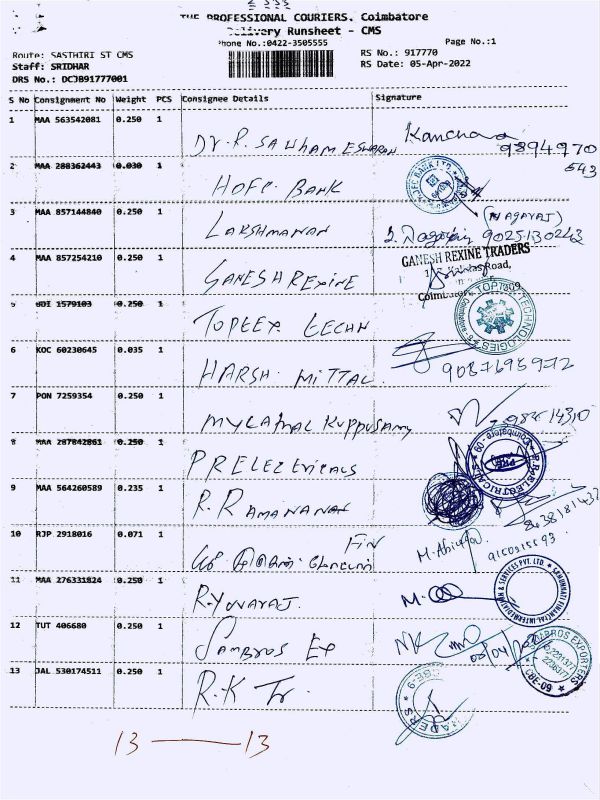 THE PROFESSIONAL COURIERS. Coimbatore
Delivery Runsheet - CMS
Phone No.:0422-3505555
Page No.:1
Route: SASTHIRI ST CMS
RS No.: 917770
Staff: SRIDHAR
RS Date: 05-Apr-2022
DRS No.: DCJB91777001
S No Consignment No Weight PCS Consignee Details Signature
1 MAA 563542081 0.250 1 Kanchana
9894970
543
2 MAA 288362443 0.030 1 HDFC BANK
3 MAA 857144840 0.250 1 LAKSHMANAN (NAGARAJ)
9025130243
4 MAA 857254210 0.250 1 GANESH REXINE GANESH REXINE TRADERS
Road,
5 UDI 1579103 0.250 1 TOPTEX TECHN TOPTEX TECHNOLOGIES
6 KOC 60230645 0.035 1 HARSH MITTAL 9087695972
7 PON 7259354 0.250 1 MYLATHAL KUPPUSAMY
8 MAA 287842861 0.250 1 PR ELECTRICALS
9 MAA 564260589 0.235 1 R. RAMANANAN
10 RJP 2918016 0.071 1 FIN M. Abi
11 MAA 276331824 0.250 1 R. YUVARAJ.
12 TUT 406680 0.250 1 SAMBROS EX SAMBROS EXPORTERS
CBE-09
13 JAL 530174511 0.250 1 R.K Tr.
13 — 13